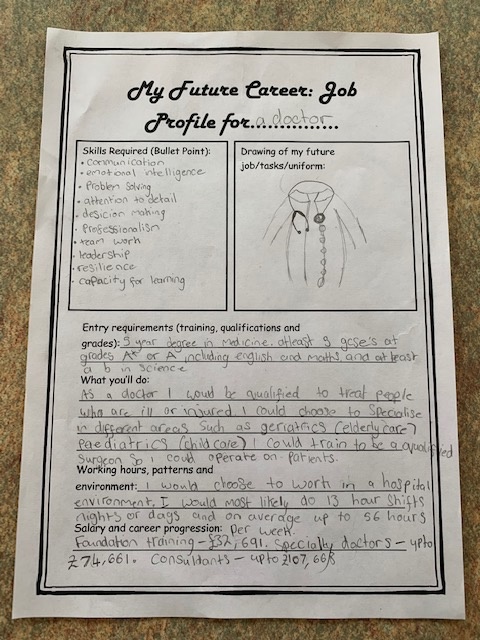 My Future Career: Job
Profile for a doctor
Skills Required (Bullet Point):
• communication
• emotional intelligence
• Problem solving
• attention to detail
• desicion making
• Professionalism
• team work
• leadership
• resilience
• capacity for learning
Drawing of my future
job/tasks/uniform:
Entry requirements (training, qualifications and
grades): 5 year degree in medicine. atleast 5 gcse's at
grades A* or A, including english and maths, and at least
a b in science
What you'll do:
As a doctor I would be qualified to treat people
who are ill or injured. I could choose to specialise
in different areas such as geriatrics (elderly care)
Paediatrics (child care) I could train to be a qualified
surgeon so I could operate on patients.
Working hours, patterns and
environment: I would choose to work in a hospital
environment. I would most likely do 13 hour shifts
nights or days and on average up to 56 hours
Salary and career progression: Per week.
Foundation training - £32,691. Specialty doctors - up to
£74,661. Consultants - up to £107,668